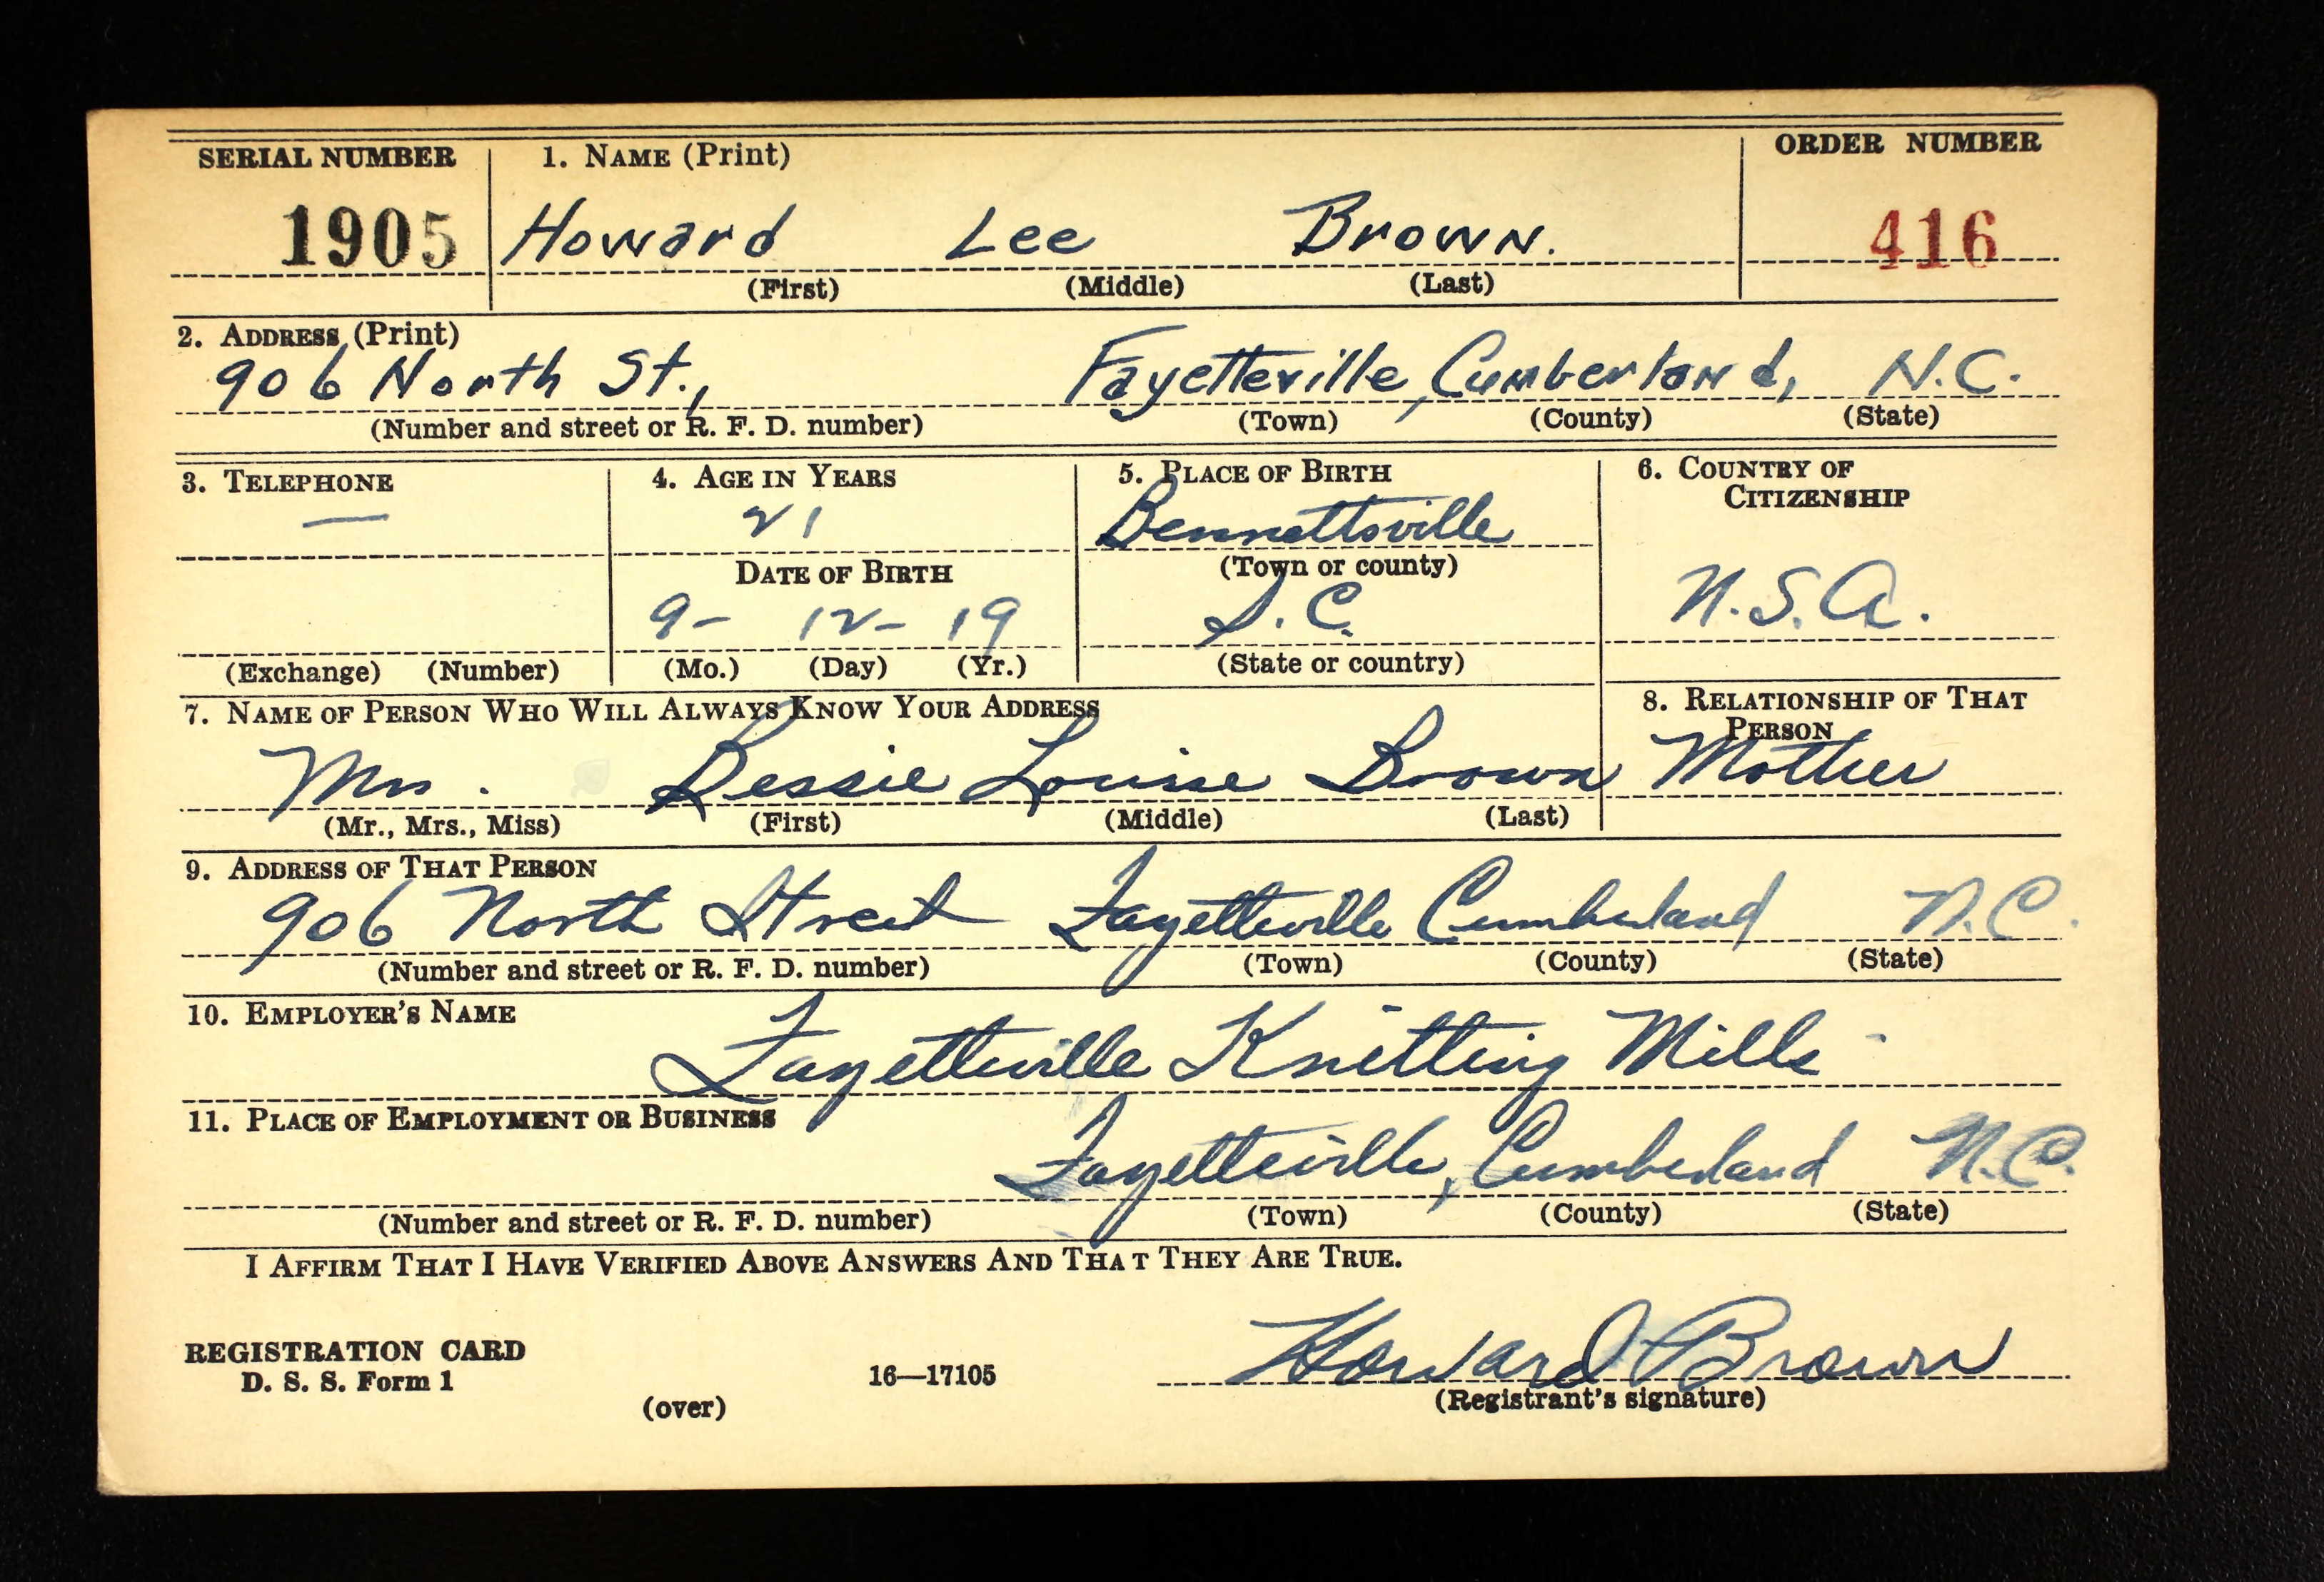 SERIAL NUMBER 1. NAME (Print) ORDER NUMBER
1905 Howard Lee Brown. 416
(First) (Middle) (Last)
2. ADDRESS (Print)
906 North St., Fayetteville, Cumberland, N.C.
(Number and street or R. F. D. number) (Town) (County) (State)
3. TELEPHONE 4. AGE IN YEARS 5. PLACE OF BIRTH 6. COUNTRY OF
CITIZENSHIP
— 21 Bennettsville
DATE OF BIRTH (Town or county)
9- 12- 19 S.C. U.S.A.
(Exchange) (Number) (Mo.) (Day) (Yr.) (State or country)
7. NAME OF PERSON WHO WILL ALWAYS KNOW YOUR ADDRESS 8. RELATIONSHIP OF THAT
PERSON
Mrs. Bessie Louise Brown Mother
(Mr., Mrs., Miss) (First) (Middle) (Last)
9. ADDRESS OF THAT PERSON
906 North Street Fayetteville Cumberland N.C.
(Number and street or R. F. D. number) (Town) (County) (State)
10. EMPLOYER'S NAME
Fayetteville Knitting Mills
11. PLACE OF EMPLOYMENT OR BUSINESS
Fayetteville, Cumberland N.C.
(Number and street or R. F. D. number) (Town) (County) (State)
I AFFIRM THAT I HAVE VERIFIED ABOVE ANSWERS AND THAT THEY ARE TRUE.
Howard Brown
REGISTRATION CARD
D. S. S. Form 1 16—17105 (Registrant's signature)
(over)